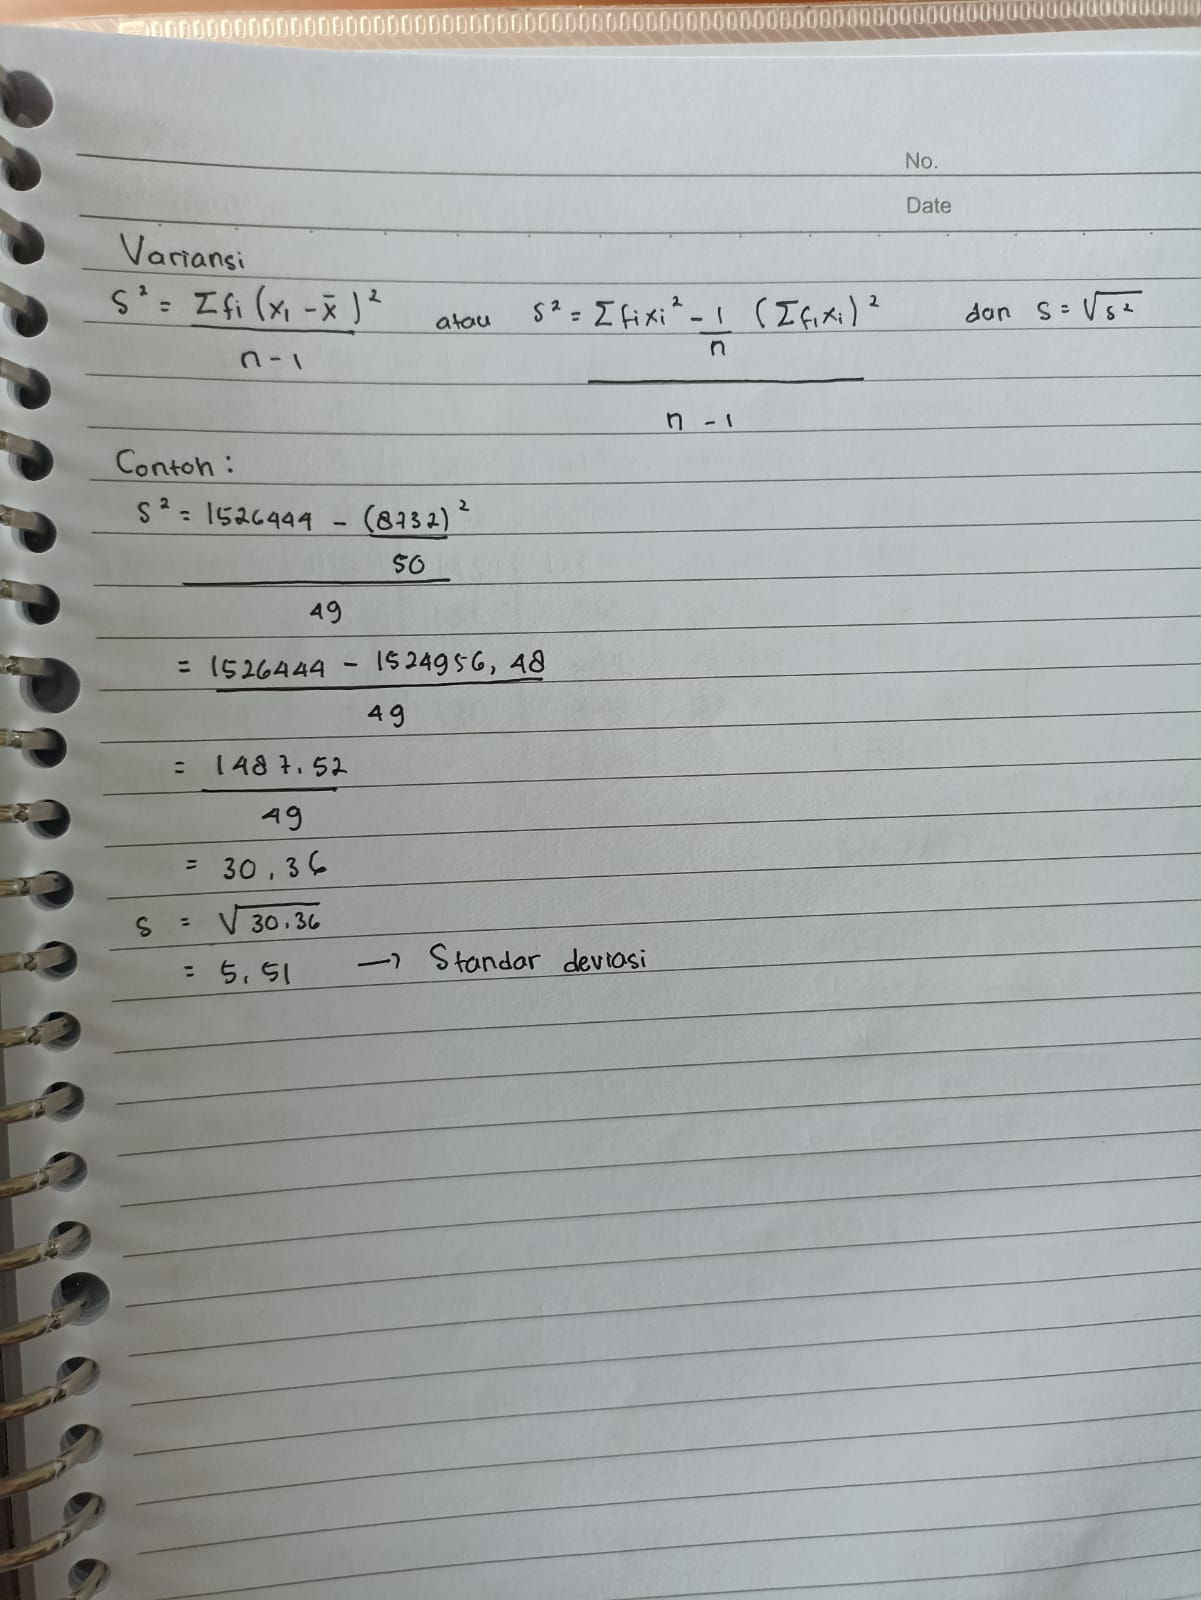 No.
Date
Variansi
S² = Σfi (xi - x̄)² / n - 1 atau S² = Σfixi² - 1/n (Σfixi)² / n - 1 dan S = √s²
Contoh :
S² = 1526444 - (8732)² / 50
49
= 1526444 - 1524956,48
49
= 1487.52
49
= 30,36
s = √30.36
= 5,51 → Standar deviasi